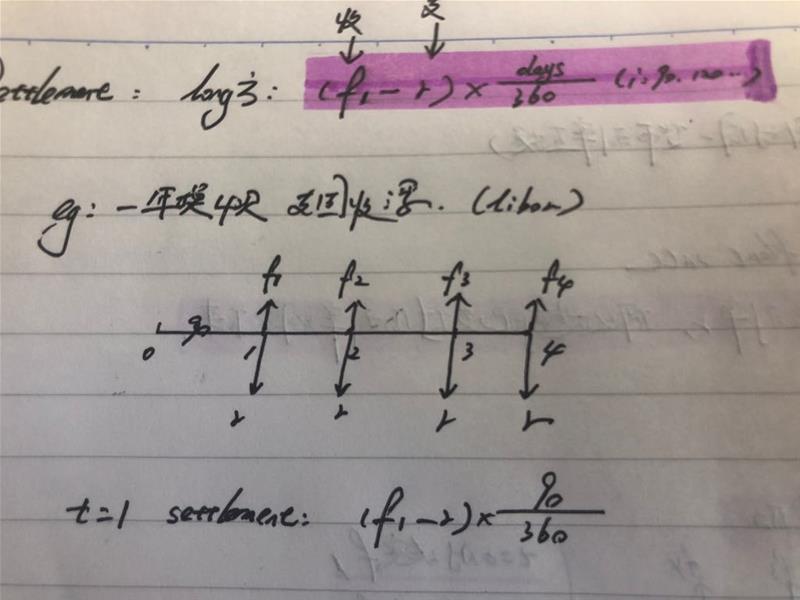 收 支
Settlement: long方: (f₁-r)×days/360 (i:90.120...)
eg: 一年换4次 支固收浮. (libor)
f₁ f₂ f₃ f₄
90
0 1 2 3 4
r r r r
t=1 settlement: (f₁-r)×90/360